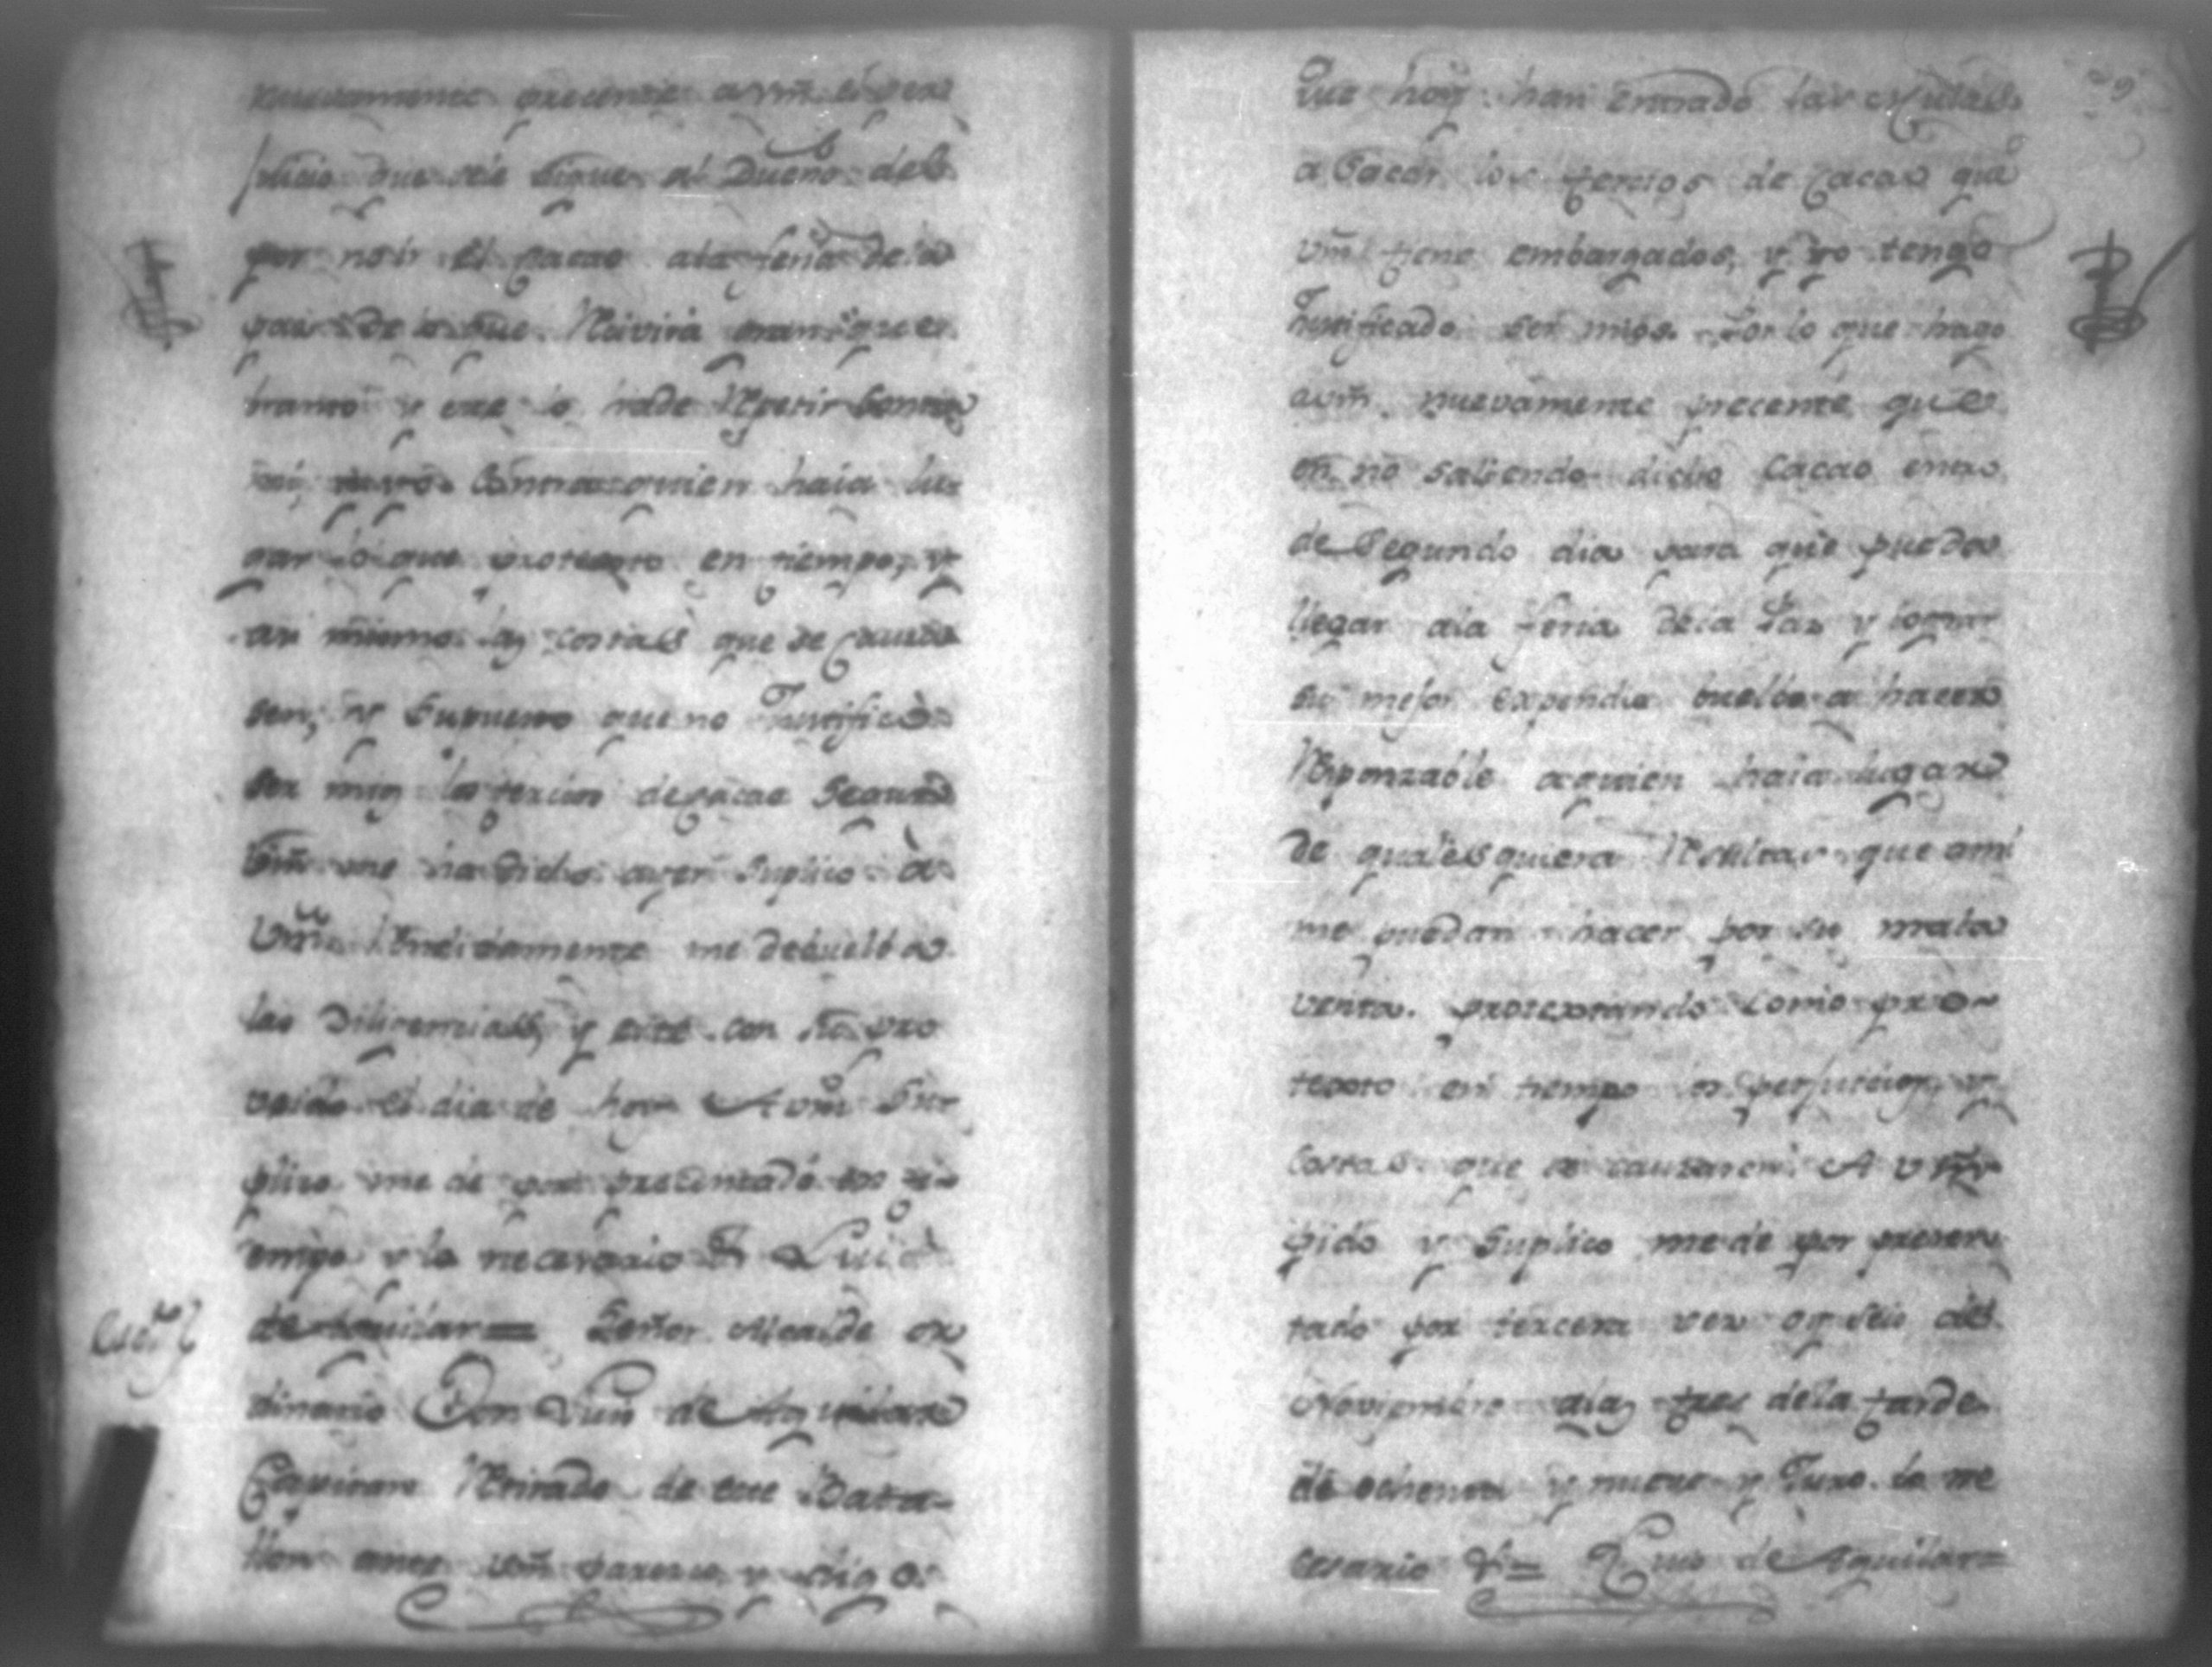 nuevamente precente a vm̃ el per
juicio que se le sigue al Dueño del
por no ir el cacao ala feria dela
paz de lo que Resivirá gran que
branto y este lo ha de Repetir contra
contra quien haia lu
gar lo que protexto en tiempo, y
asi mismo las costass que se causa
sen, y Supuesto que no Justificò
ser mios los tercios de cacao Segun
Vm̃ me ha dicho ayer Suplico à
Vm̃ Rendidamente me debuelba
las Diligenciass, y este con su pro
veido el dia de hoy A vm̃ Su
plico me de por precentado en ti
empo y lo necesario &ª Luis
Escto
de Aguilar = Señor Alcalde or
dinario Don Luis de Aguilar
Capitan Retirado de este Bata-
llon antes vm̃ paresco, y digo:
Que hoy han entrado las Mulass
a Sacar los tercios de Cacao que
vm̃ tiene embargados, y yo tengo
Justificado ser mios. Por lo que hago
a vm̃ nuevamente precente que
en no saliendo dicho Cacao entro
de Segundo dia para que pueda
llegar ala feria dela Paz y lograr
su mejor expendio buelbo a hacer
Responzable a quien haia lugar
de qualesquiera Resultas que ami
me puedan hacer por su mala
venta. protextando como pro-
texto en tiempo los perjuicios, y
Costas que se causaren. A vm̃
pido y Suplico me de por presen
tado por tercera vez oy seis de
Noviembre alas tres dela tarde
de ochenta y nueve y Juro lo ne
cesario &ª = Luis de Aguilar =